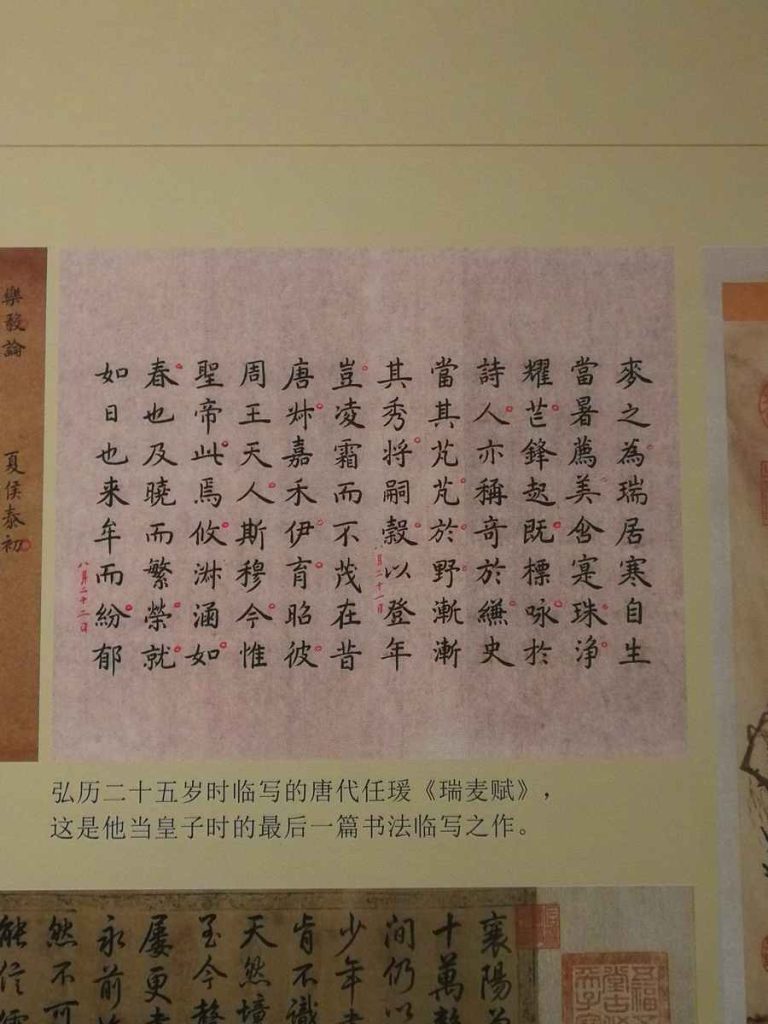 麥之為瑞居寒自生
當暑薦美含寔珠淨
耀芒鋒起既標咏於
詩人亦稱奇於縑史
當其芃芃於野漸漸
其秀将嗣穀以登年
八月二十一日
豈凌霜而不茂在昔
唐叔嘉禾伊育昭彼
周王天人斯穆今惟
聖帝此焉攸淑涵如
春也及曉而繁榮就
如日也来牟而紛郁
八月二十二日
樂毅論
夏侯泰初
弘历二十五岁时临写的唐代任瑗《瑞麦赋》，
这是他当皇子时的最后一篇书法临写之作。
襄陽
十萬
間仍以
少年
肯不識
天然境
至今
屡更
永前
然不可
能